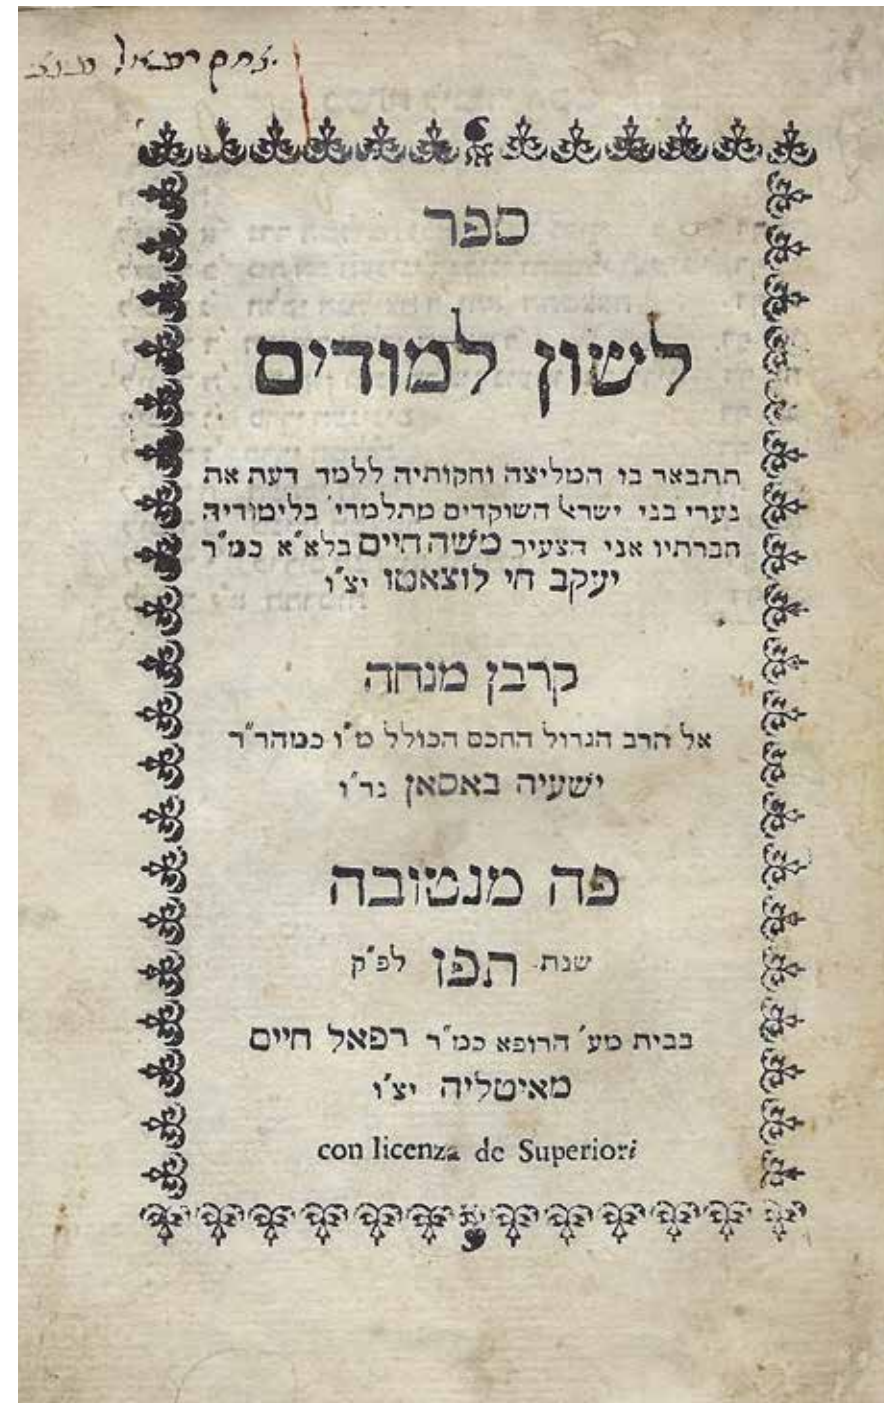 ספר
לשון למודים
תתבאר בו המליצה וחקותיה ללמד דעת את
נערי בני ישראל השוקדים מתלמדי׳ בלימודיה
חברתיו אני הצעיר משה חיים בלא״א כמ״ר
יעקב חי לוצאטו יצ״ו
קרבן מנחה
אל הרב הגדול החכם הכולל מ״ו כמהר״ר
ישעיה באסאן נר״ו
פה מנטובה
שנת תפז לפ״ק
בבית מע׳ הרופא כמ״ר רפאל חיים
מאיטליה יצ״ו
con licenza de Superiori